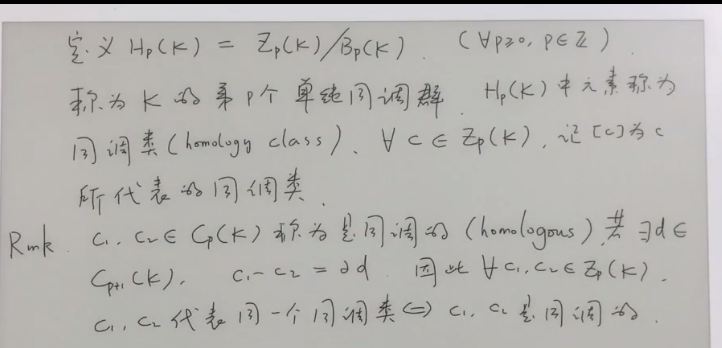 定义 Hp(K) = Zp(K)/Bp(K). (∀p≥0, p∈ℤ)
称为 K 的第 p 个单纯同调群. Hp(K) 中元素称为
同调类 (homology class). ∀ c ∈ Zp(K), 记 [c] 为 c
所代表的同调类.
Rmk. c₁, c₂ ∈ Cp(K) 称为是同调的 (homologous), 若 ∃d ∈
Cp+1(K), c₁-c₂ = ∂d. 因此 ∀ c₁, c₂ ∈ Zp(K),
c₁, c₂ 代表同一个同调类 ⇔ c₁, c₂ 是同调的.